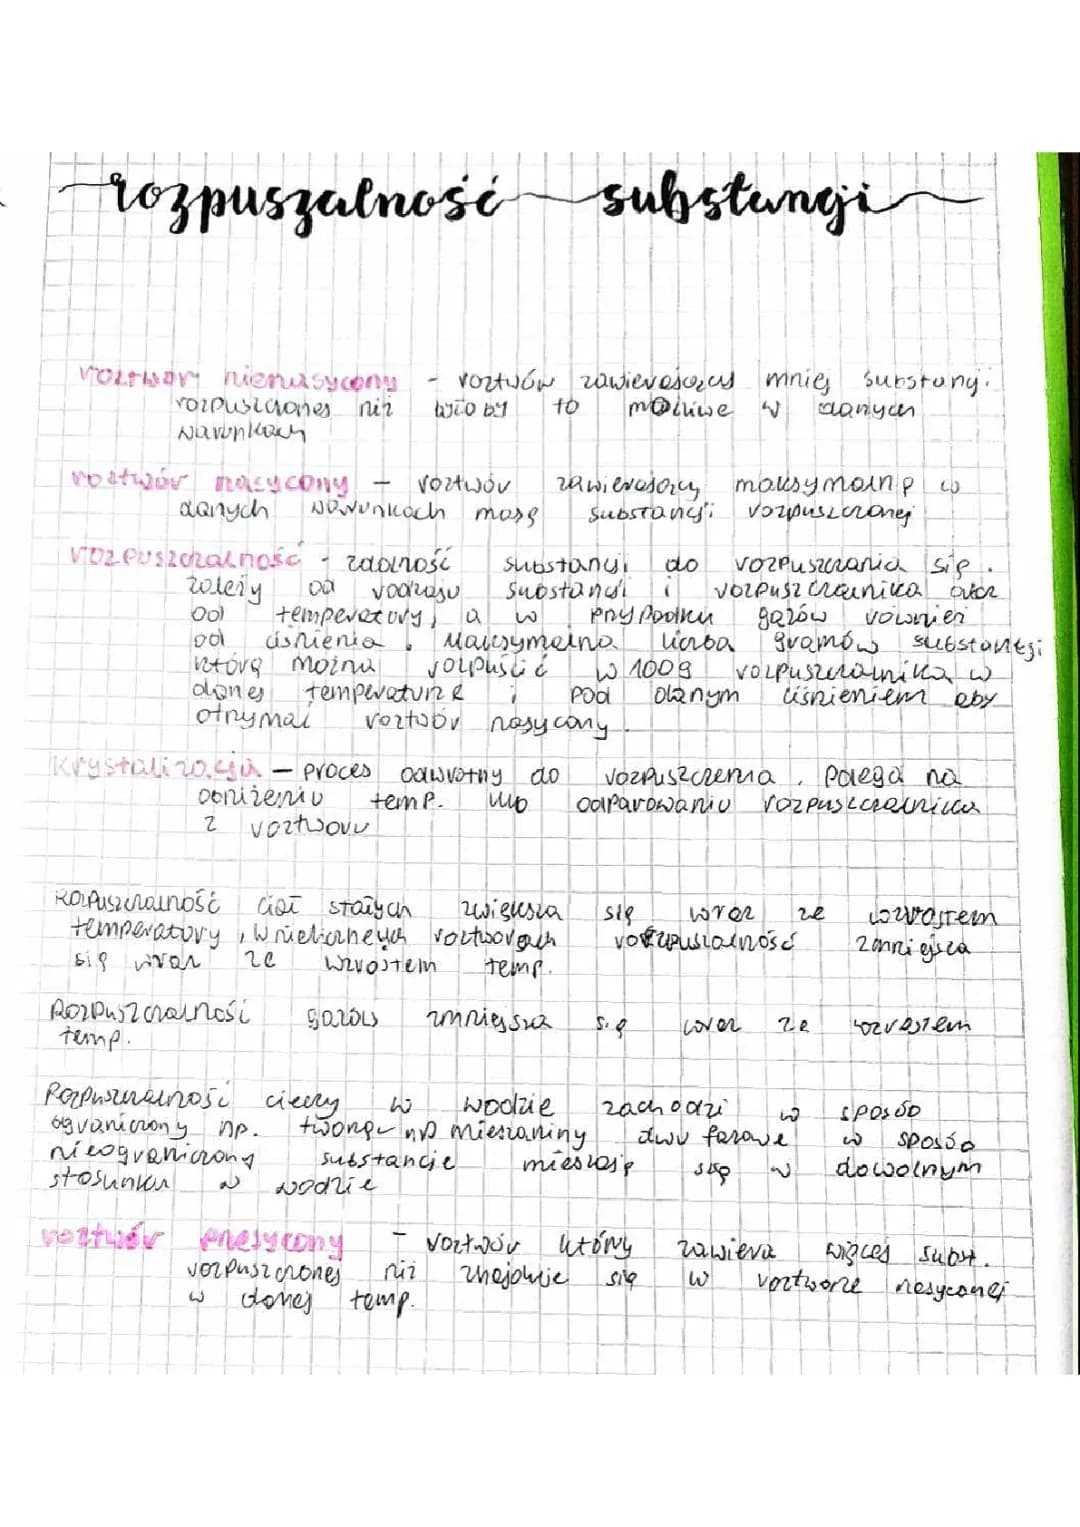 rozpuszalność substancji
roztwór nienasycony - roztwór zawierający mniej substancji
rozpuszczonej niż byłoby to możliwe w danych
warunkach
roztwór nasycony - roztwór zawierający maksymalną w
danych warunkach masę substancji rozpuszczonej
rozpuszczalność - zdolność substancji do rozpuszczania się.
zależy od rodzaju substancji i rozpuszczalnika oraz
od temperatury, a w przypadku gazów również
od ciśnienia. Maksymalna liczba gramów substancji
którą można rozpuścić w 100g rozpuszczalnika w
danej temperaturze i pod danym ciśnieniem aby
otrzymać roztwór nasycony.
Krystalizacja - proces odwrotny do rozpuszczenia. Polega na
obniżeniu temp. lub odparowaniu rozpuszczalnika
z roztworu
Rozpuszczalność ciał stałych zwiększa się wraz ze wzrostem
temperatury, w nielicznych roztworach rozpuszalność zmniejsza
się wraz ze wzrostem temp.
Rozpuszczalność gazów zmniejsza się wraz ze wzrostem
temp.
Rozpuszczalność cieczy w wodzie zachodzi w sposób
ograniczony np. tworząc np mieszaniny dwu fazowe w sposób
nieograniczony substancje mieszają się w dowolnym
stosunku w wodzie
roztwór przesycony - roztwór który zawiera więcej subst.
rozpuszczonej niż znajduje się w roztworze nasyconej
w danej temp.